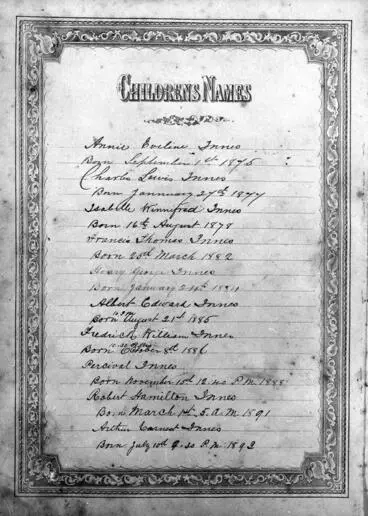 CHILDRENS NAMES
Annie Eveline Innes
Born September 1st 1875
Charles Lewis Innes
Born Jannuary 27th 1877
Isabelle Winnifred Innes
Born 16th August 1878
Francis Thomas Innes
Born 23rd March 1882
Henry George Innes
Born January 24th
Albert Edward Innes
Born August 21st 1885
Fredrick William Innes
Born October 8th 1886
Percival Innes
Born November 15th 12.40 P.M. 1888
Robert Hamilton Innes
Born March 1st 5. A.M 1891
Arthur Earnest Innes
Born July 10th 9.30 P.M. 1893